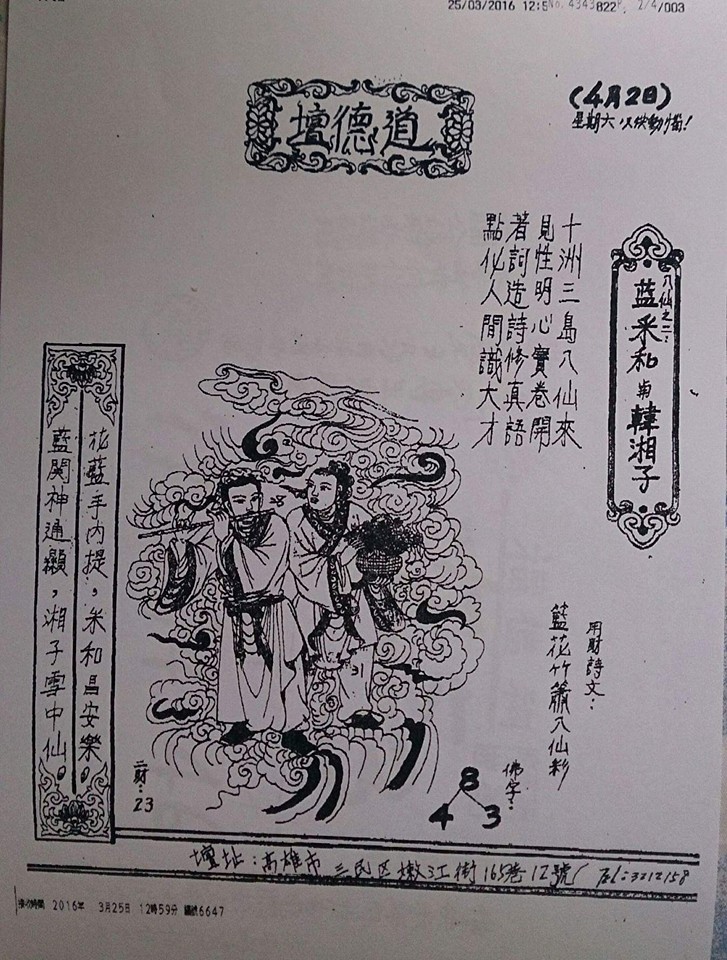 25/03/2016 12:5
No. 4343
822
P. 2/4
/003
道德壇
(4月2日)
星期六
八仙之二:
藍采和与韓湘子
十洲三島八仙來
見性明心實卷開
著訶造詩修真語
點化人間識大才
花藍手內提，采和昌安樂。
藍関神通顯，湘子雪中仙。
用財詩文:
籃花竹簫八仙彩
佛字:
8
4 3
31
二財:
23
壇址:高雄市三民区嫩江街165巷12號 Tel:3212158
接收時間 2016年 3月25日 12時59分 編號6647